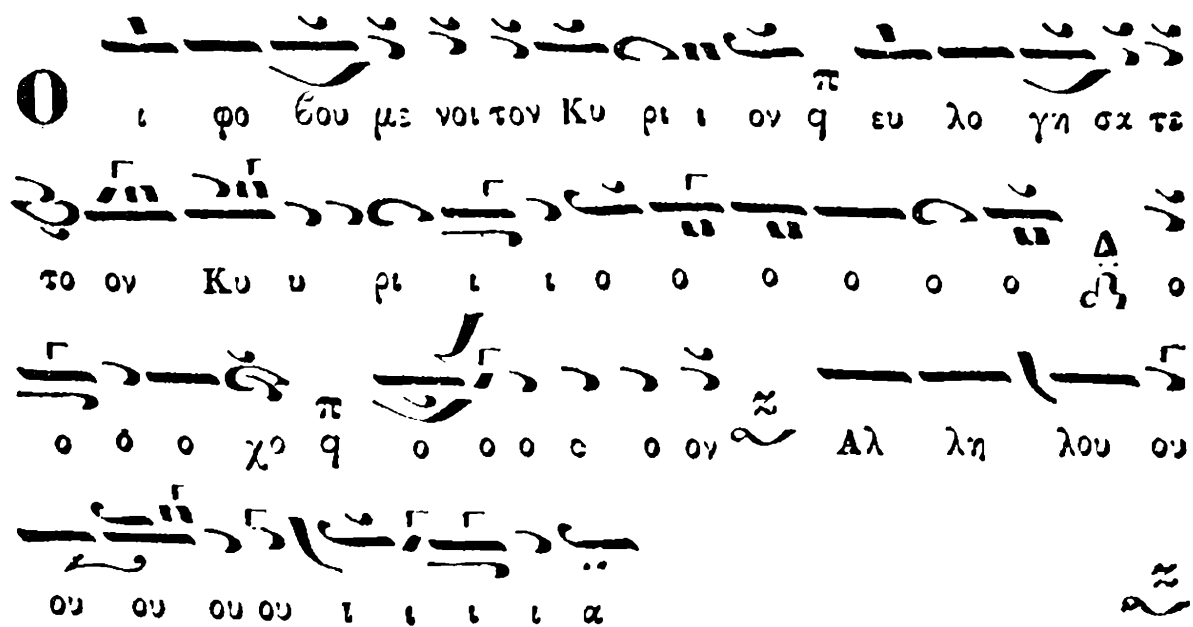 Ο ι φο βου με νοι τον Κυ ρι ι ον π q ευ λο γη σα τε
το ον Κυ υ ρι ι ι ο ο ο ο ο ο Δ ο
ο ο ο χο π q ο ο ο ο ο ον Αλ λη λου ου
ου ου ου ου ι ι ι ι α